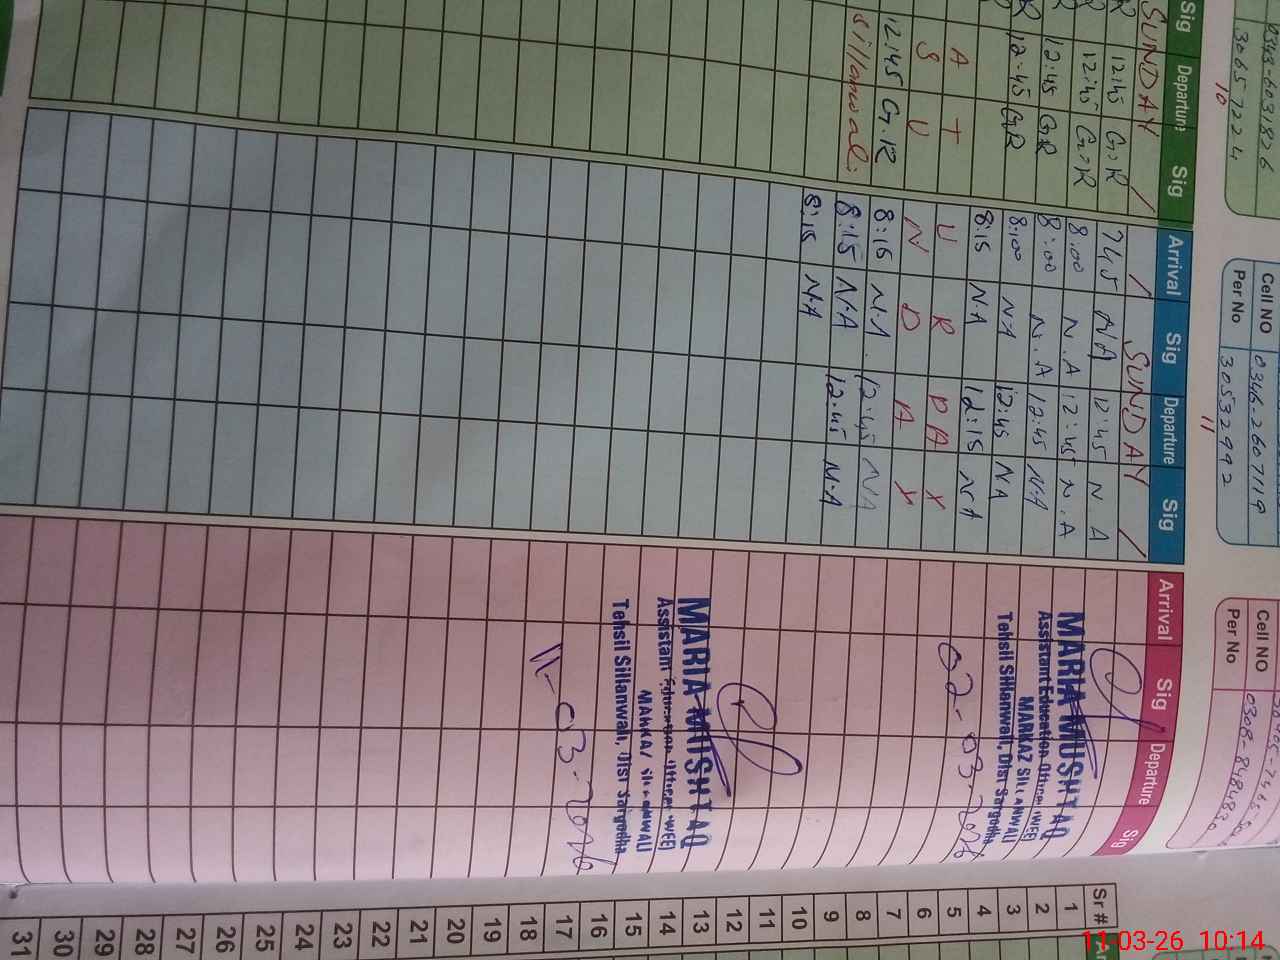 0343-6031826
30657224
10
Cell NO 0346-2607119
Per No 30532992
11
Cell NO
Per No 0308-8484830
Sig Departure Sig Arrival Sig Departure Sig Arrival Sig Departure Sig
SUNDAY / / SUNDAY /
R 12:45 G.R 745 NA 12:45 N A
12:45 G.R 8.00 N.A 12:45 N.A
12:45 GR 8:00 N.A 12:45 N.A
12-45 GR 8:00 NA 12:45 NA
8:15 N.A 12:15 NA
A T U R D A Y
S U N D A Y
12:45 G.R 8:15 N.A. 12:45 NA
sillanwali 8:15 N.A 12:45 N.A
8:15 N.A
MARIA MUSHTAQ
Assistant Education Officer (WEE)
MARKAZ SILLANWALI
Tehsil Sillanwali, Dist Sargodha
02-03-2026
MARIA MUSHTAQ
Assistant Education Officer (WEE)
MARKAZ SILLANWALI
Tehsil Sillanwali, Dist Sargodha
11-03-2026
Sr#
1
2
3
4
5
6
7
8
9
10
11
12
13
14
15
16
17
18
19
20
21
22
23
24
25
26
27
28
29
30
31
11-03-26 10:14